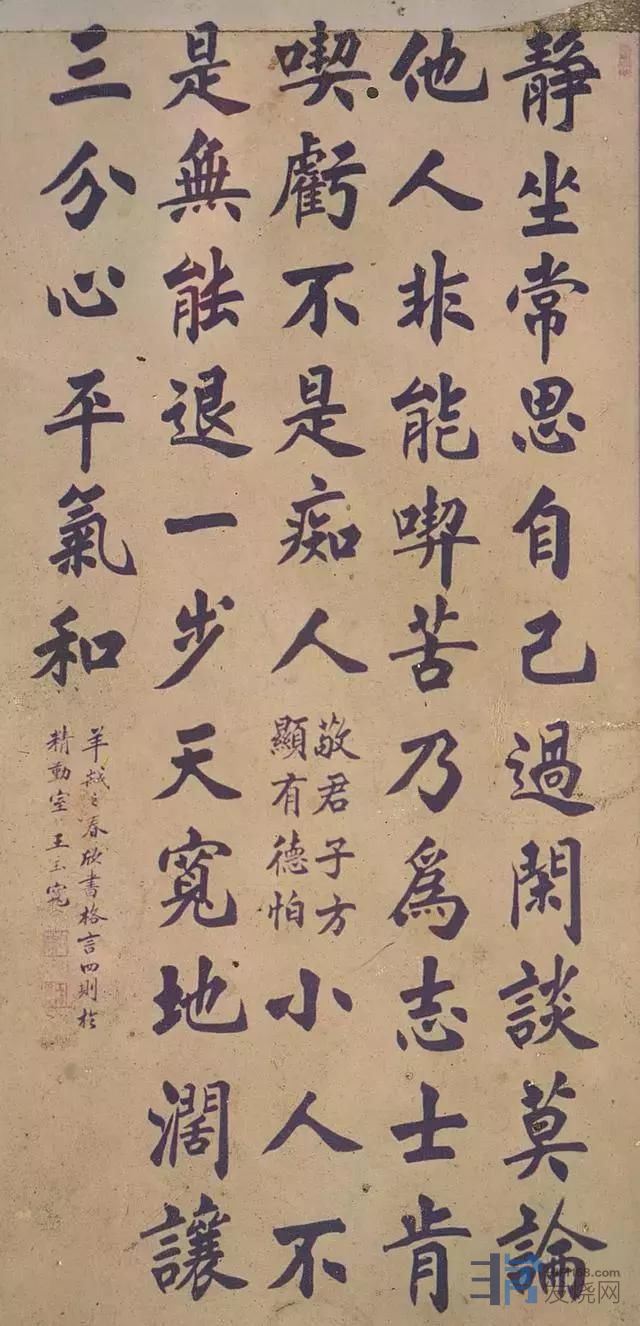 静坐常思自己過閑談莫論
他人非能喫苦乃為志士肯
喫虧不是痴人敬君子方
顯有德怕小人不
是無能退一步天寬地濶讓
三分心平氣和
春欣書格言四則於
精勤室王
168.com
发烧网